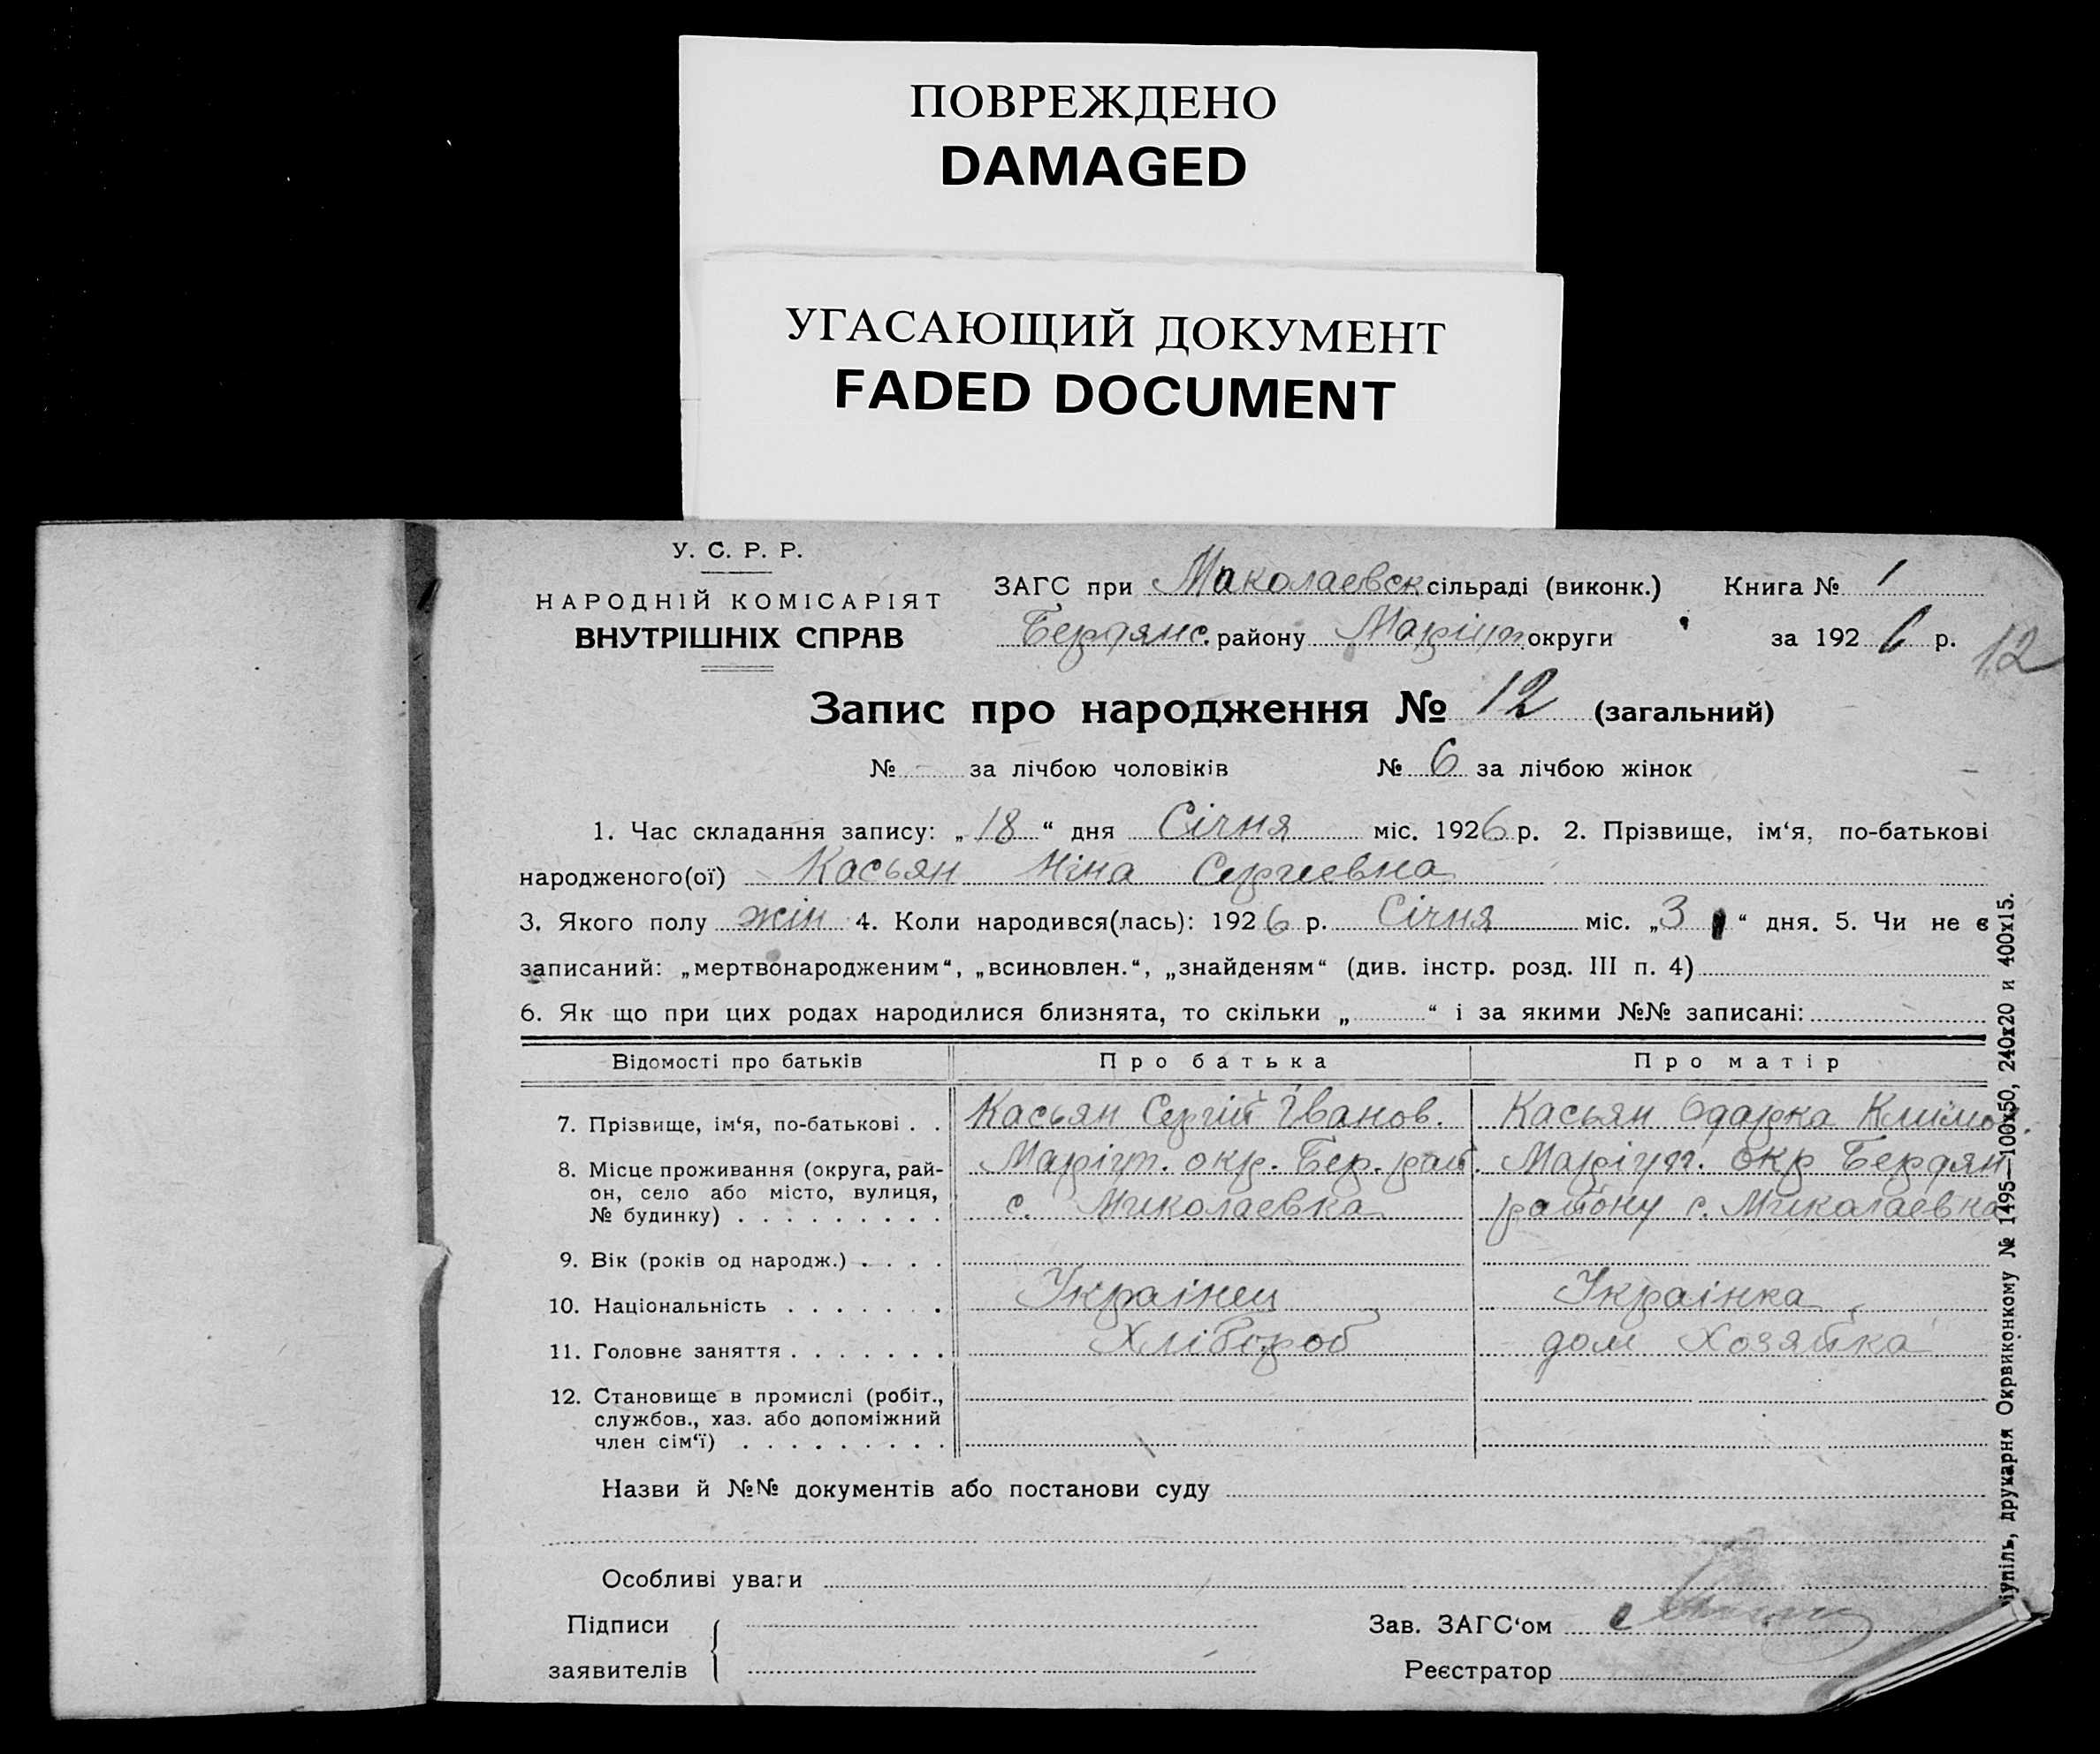 ПОВРЕЖДЕНО
DAMAGED
УГАСАЮЩИЙ ДОКУМЕНТ
FADED DOCUMENT
У. С. Р. Р.
НАРОДНІЙ КОМІСАРІЯТ
ВНУТРІШНІХ СПРАВ
ЗАГС при Миколаевск сільраді (виконк.) Книга № 1
Бердянс. району Маріуп. округи за 1926 р.
12
Запис про народження № 12 (загальний)
№ - за лічбою чоловіків № 6 за лічбою жінок
1. Час складання запису: „18“ дня Січня міс. 1926 р. 2. Прізвище, ім‘я, по-батькові
народженого(ої) Касьян Ніна Сергиевна
3. Якого полу жін 4. Коли народився(лась): 1926 р. Січня міс. „3“ дня. 5. Чи не є
записаний: „мертвонародженим“, „всиновлен.“, „знайденям“ (див. інстр. розд. III п. 4)
6. Як що при цих родах народилися близнята, то скільки „ “ і за якими №№ записані:
Відомості про батьків Про батька Про матір
7. Прізвище, ім‘я, по-батькові . . Касьян Сергій Іванов. Касьян Одарка Климов.
8. Місце проживання (округа, рай- Маріуп. окр. Бер. рай. Маріуп. окр Бердян
он, село або місто, вулиця, с. Миколаевка району с. Миколаевка
№ будинку) . . . . . . . . .
9. Вік (років од народж.) . . . .
10. Національність . . . . . . . Украінец Украінка
11. Головне заняття . . . . . . . Хлібороб дом Хозяйка
12. Становище в промислі (робіт.,
службов., хаз. або допоміжний
член сім‘ї) . . . . . . . . .
Назви й №№ документів або постанови суду
Особливі уваги
Підписи
заявителів
Зав. ЗАГС‘ом
Реєстратор
іупіль, друкарня Окрвиконкому № 1495—100x50, 240x20 и 400x15.